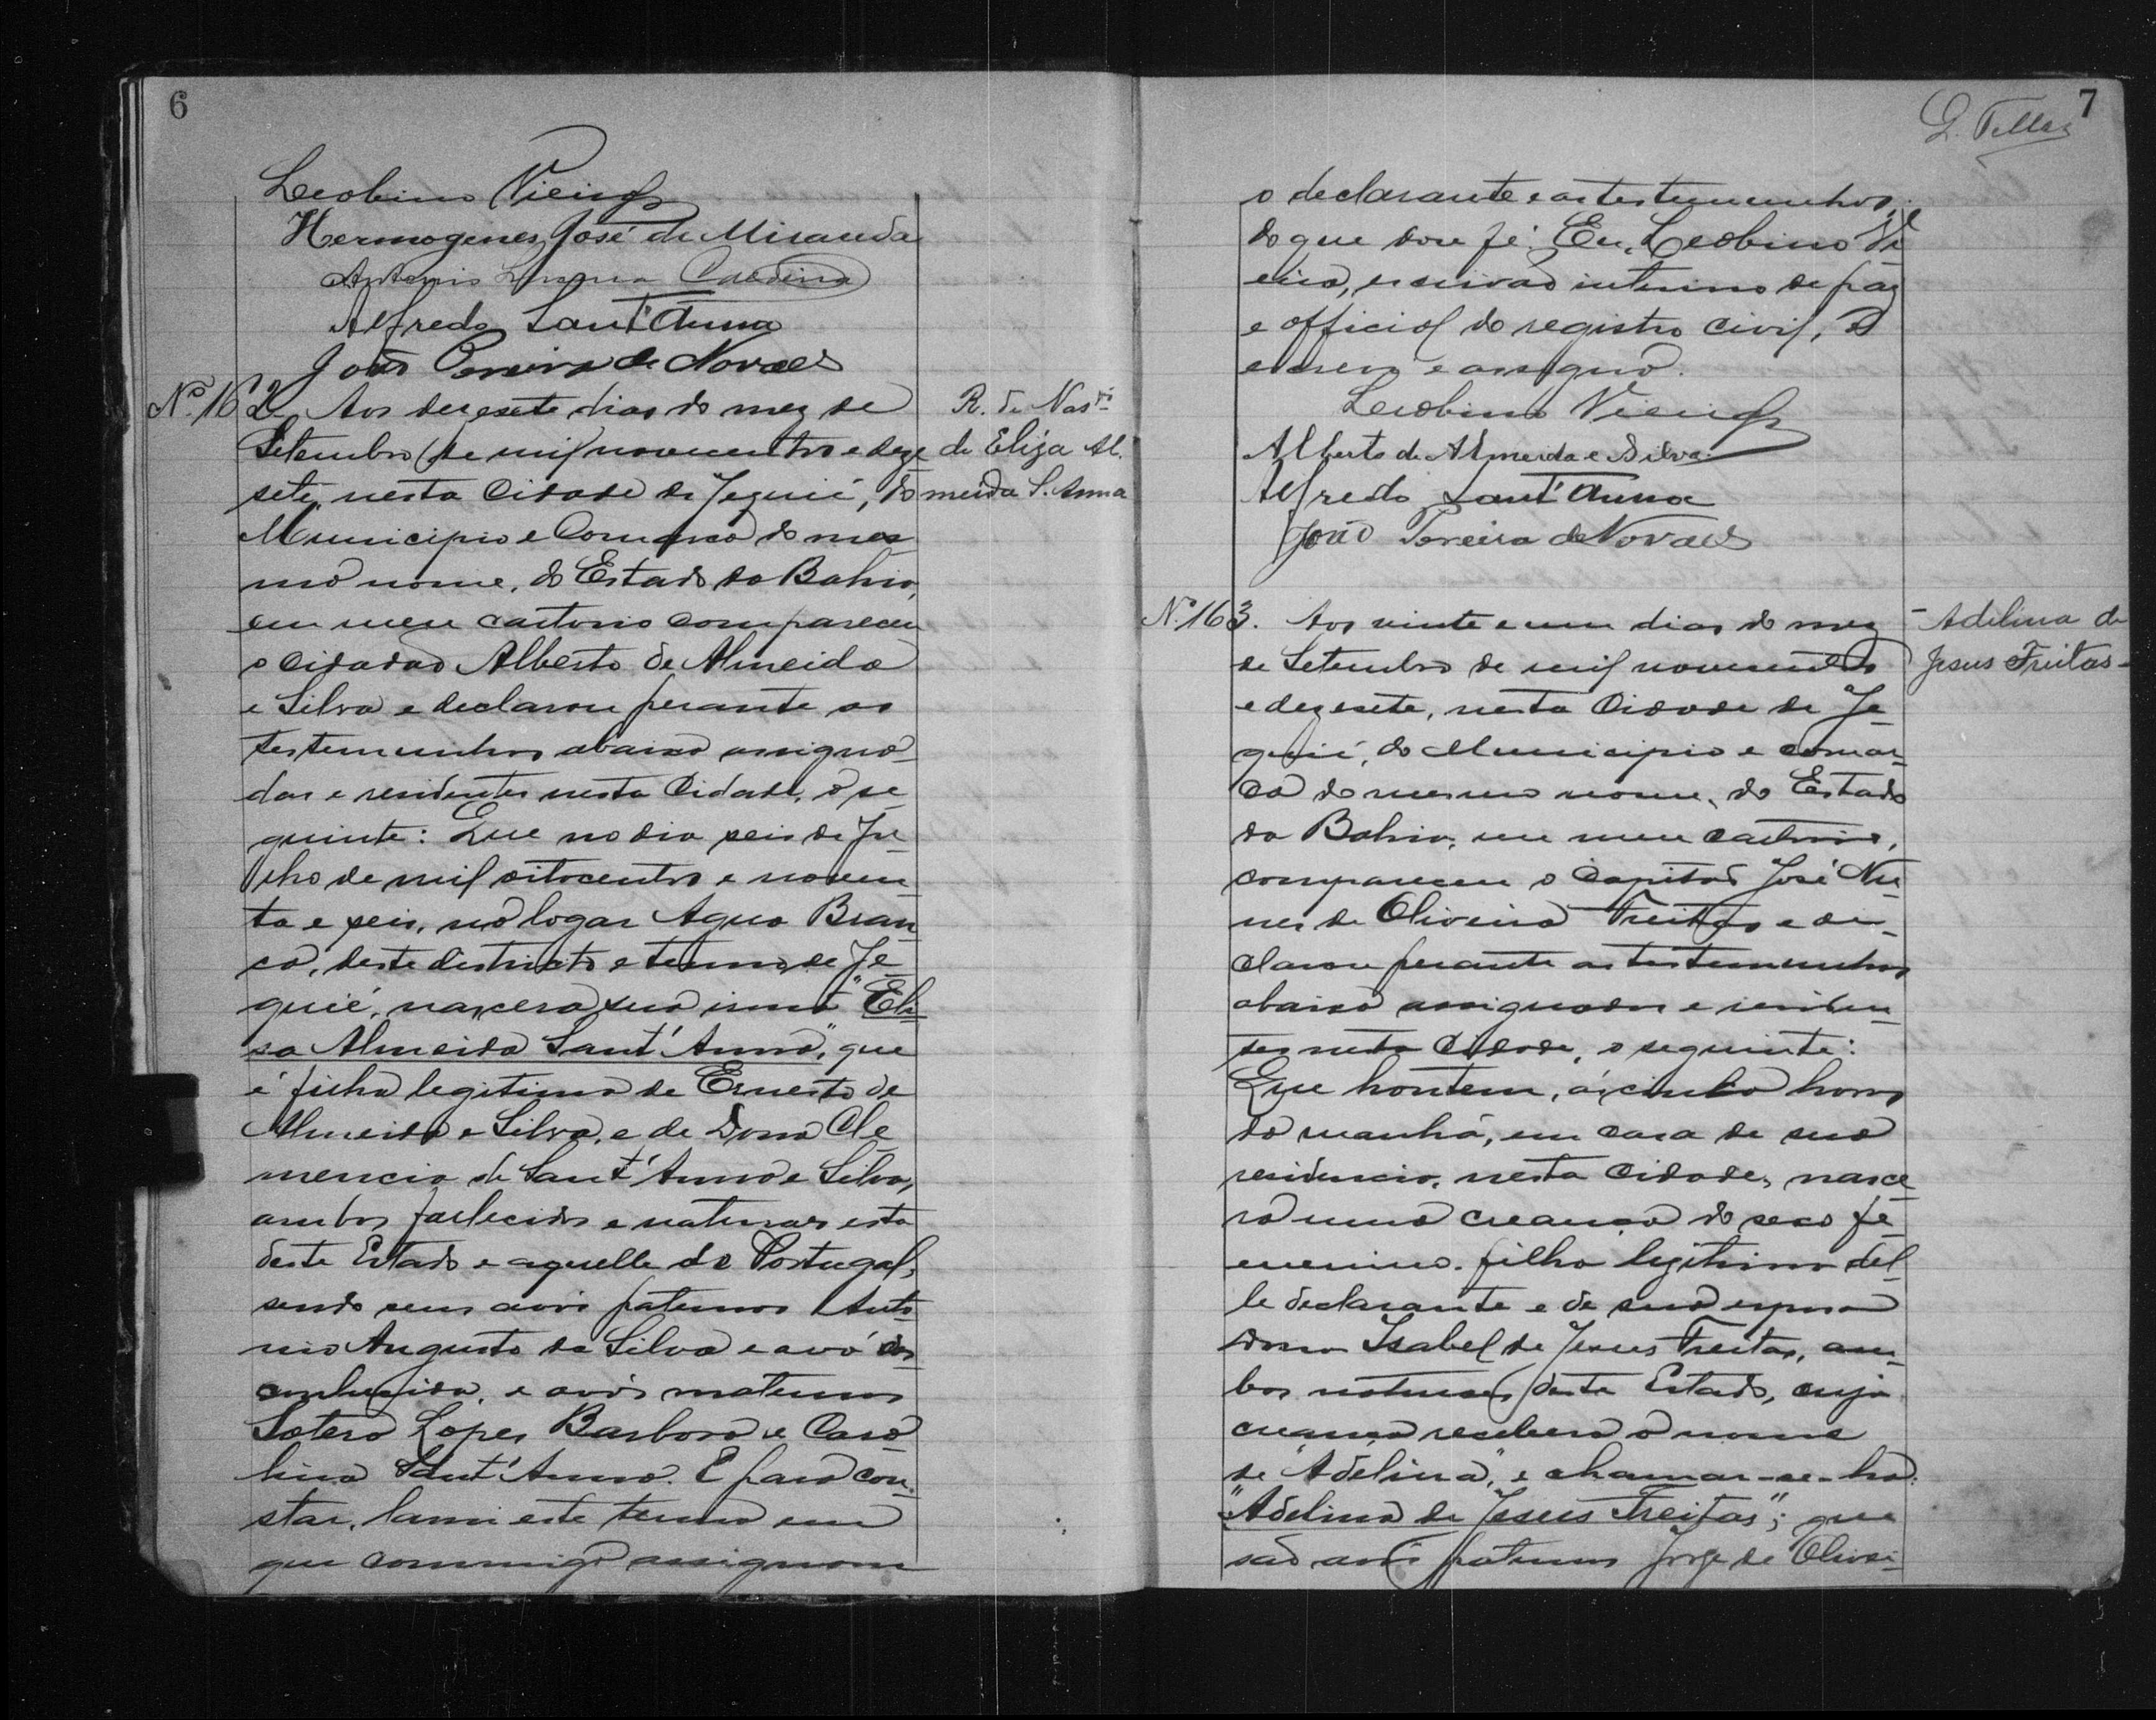 6
Leobino Vieira
Hermogenes José de Miranda
Antonio
Alfredo Sant'Anna
João Pereira de Novaes
Nº 162 Aos dezesete dias do mez de
Setembro de mil novecentos e deze
sete, nesta Cidade de Jequié, do
Municipio e Comarca do mes
mo nome, do Estado da Bahia,
em meu cartorio compareceu
o cidadão Alberto de Almeida
e Silva e declarou perante as
testemunhas abaixo assigna-
das e residentes nesta Cidade, o se-
guinte: Que no dia seis de Ju-
lho de mil oitocentos e noven
ta e seis, no logar Agua Bran-
ca, deste districto e termo de Je-
quié, nascera sua irmã "Eli-
sa Almeida Sant'Anna", que
é filha legitima de Ernesto de
Almeida e Silva, e de Dona Cle-
mencia de Sant'Anna e Silva,
ambos fallecidos e naturaes esta
deste Estado e aquelle de Portugal,
sendo seus avós paternos Anto-
nio Augusto da Silva e avó des-
conhecida, e avós maternos
Sotero Lopes Barbosa e Caro-
lina Sant'Anna. E para con-
star, lavrei este termo em
que commigo assignam
R. de Nasᵗᵒ
de Eliza Al.
meida S. Anna
7
L. Telles
o declarante e as testemunhas,
do que dou fé. Eu, Leobino Vi
eira, escrivão interino de paz
e official do registro civil, o
escrevi e assigno.
Leobino Vieira
Alberto de Almeida e Silva
Alfredo Sant'Anna
João Pereira de Novaes
Nº 163. Aos vinte e um dias do mez
de Setembro de mil novecentos
e dezesete, nesta Cidade de Je-
quié, do Municipio e comar-
ca do mesmo nome, do Estado
da Bahia, em meu cartorio,
compareceu o Capitão José Nu-
nes de Oliveira Freitas e de-
clarou perante as testemunhas
abaixo assignadas e residen-
tes nesta Cidade, o seguinte:
Que hontem, ás cinco horas
da manhã, em casa de sua
residencia, nesta Cidade, nasce-
ra uma creança do sexo fe-
menino, filha legitima del-
le declarante e de sua esposa
Dona Isabel de Jesus Freitas, am-
bos naturaes deste Estado, cuja
creança recebera o nome
de "Adelina", e chamar-se-ha:
"Adelina de Jesus Freitas"; que
são avós paternos Jorge de Olivei-
- Adelina de
Jesus Freitas -